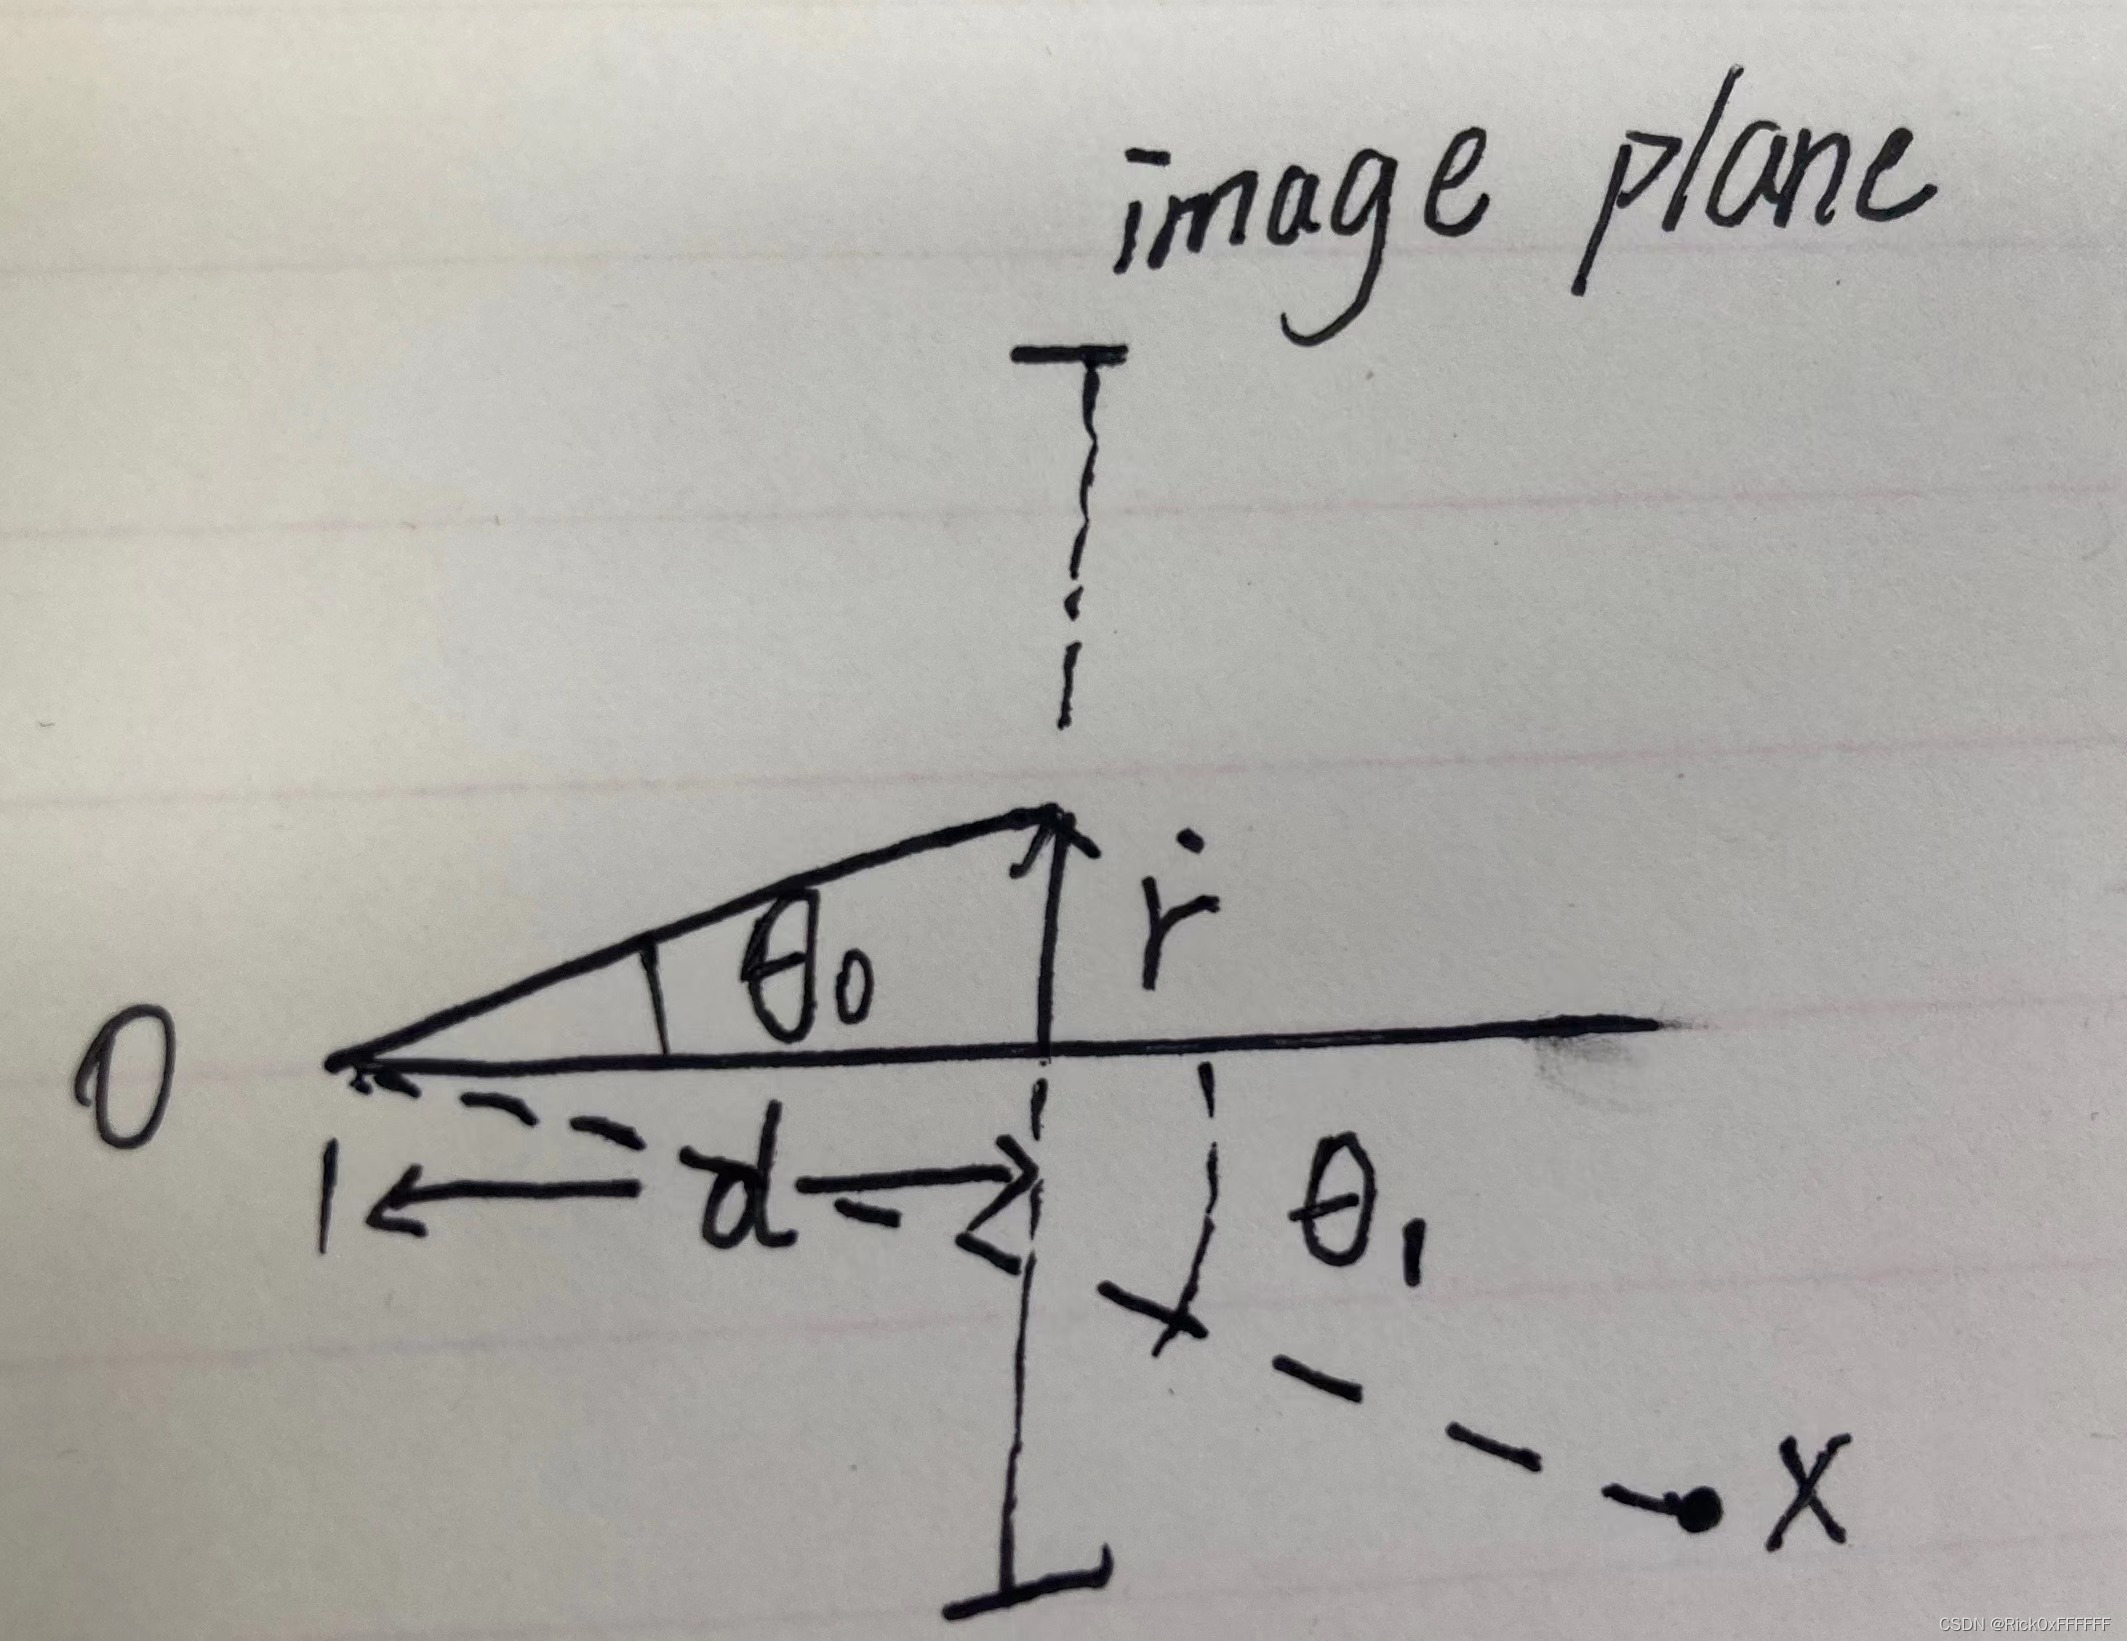 image plane
ṙ
θ₀
O
d
θ₁
X
CSDN @Rick0xFFFFFF